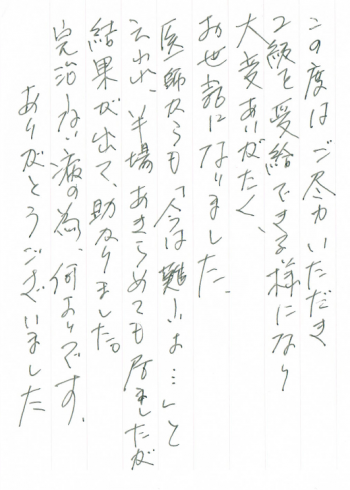 この度はご尽力いただき
2級を受給できる様になり
大変ありがたく、
お世話になりました。
医師からも「今は難しいよ…」と
云われ、半場あきらめても居ましたが
結果が出て、助かりました。
完治ない病の為、何よりです。
ありがとうございました